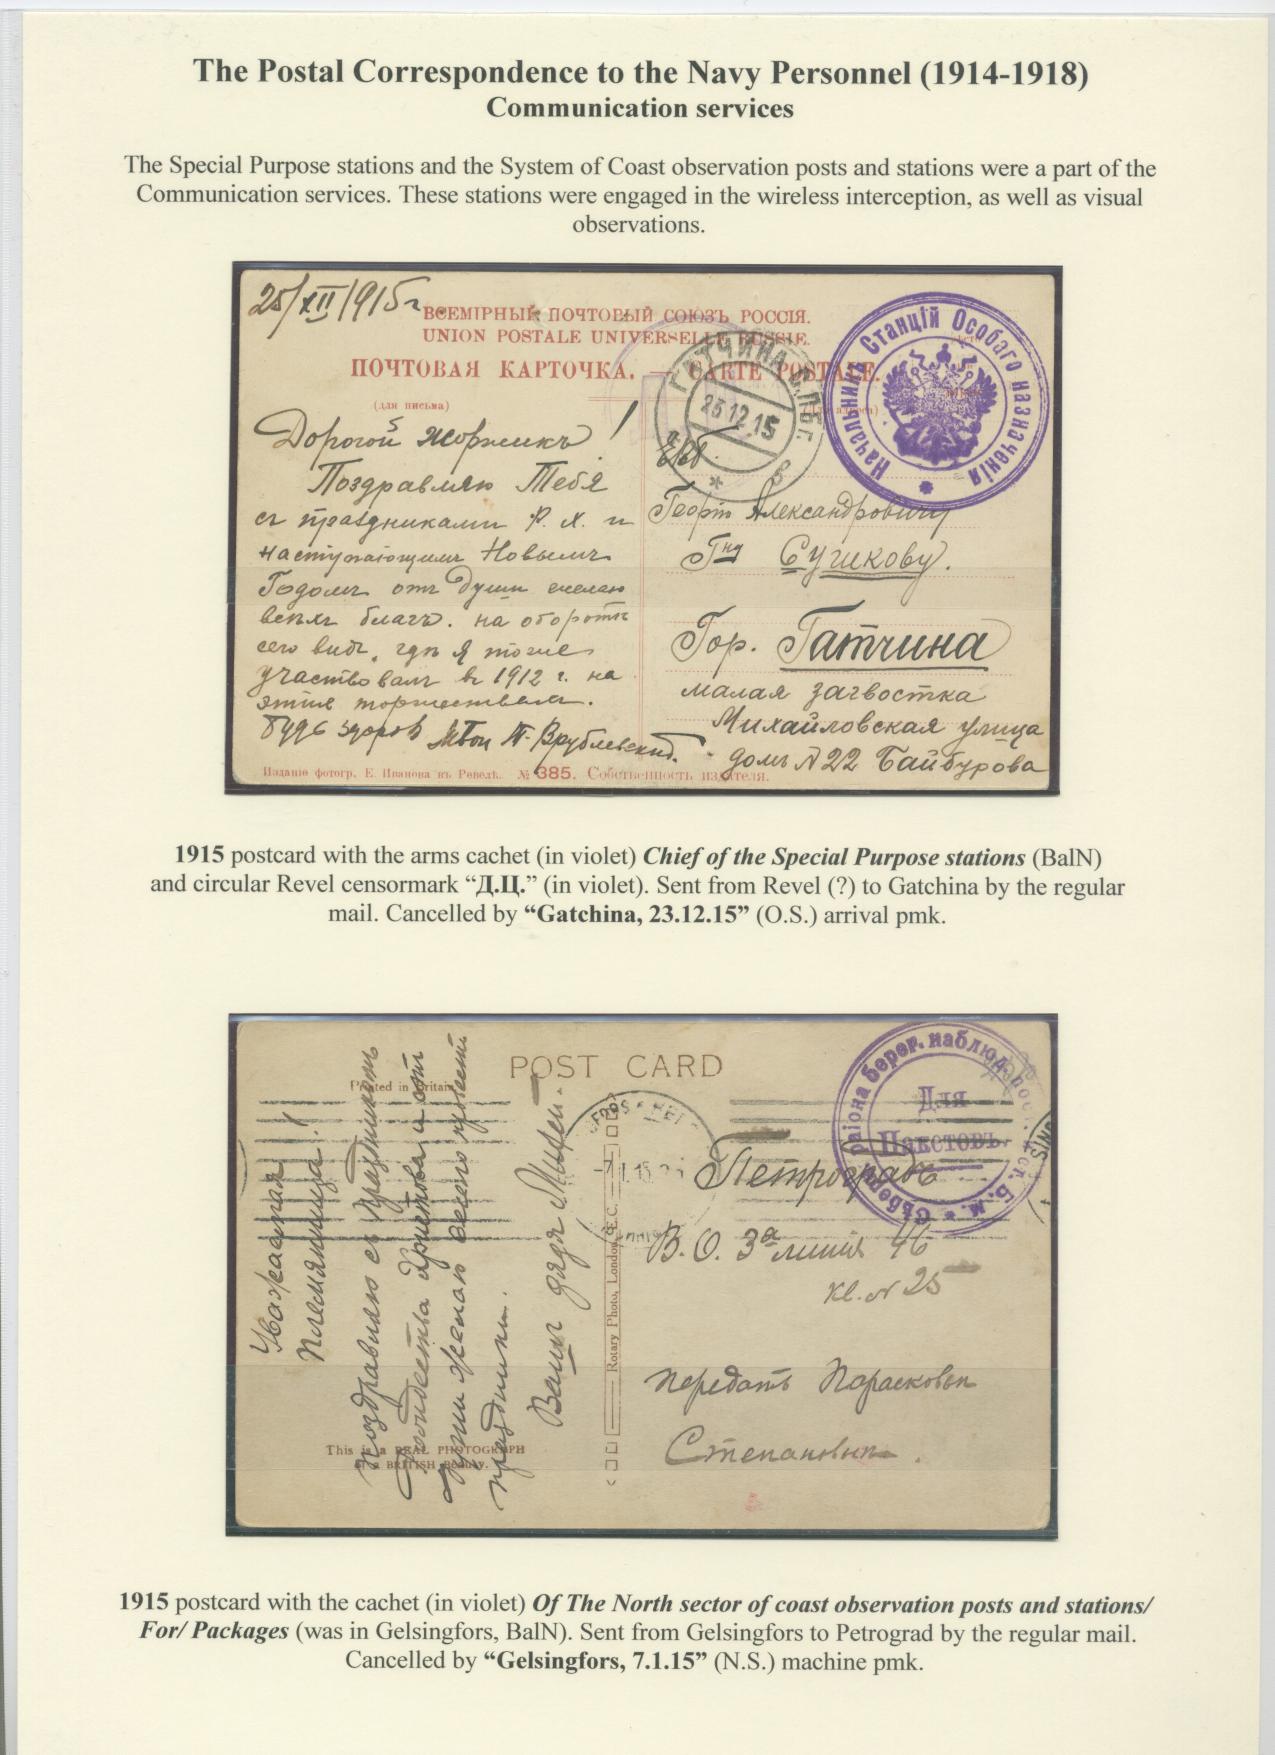 The Postal Correspondence to the Navy Personnel (1914-1918)
Communication services
The Special Purpose stations and the System of Coast observation posts and stations were a part of the
Communication services. These stations were engaged in the wireless interception, as well as visual
observations.
25/XII/1915 г
ВСЕМІРНЫЙ ПОЧТОВЫЙ СОЮЗЪ РОССІЯ.
UNION POSTALE UNIVERSELLE RUSSIE.
ПОЧТОВАЯ КАРТОЧКА. — CARTE POSTALE.
(для письма)
Начальникъ Станцій Особаго назначенія
ГАТЧИНА С.ПБГ.
23.12.15
в
Дорогой Жоржикъ!
Поздравляю Тебя
съ праздниками Р. Х. и
наступающимъ Новымъ
Годомъ отъ души желаю
всѣхъ благъ. на оборотѣ
сего видъ, гдѣ я тоже
участвовалъ въ 1912 г. на
этихъ торжествахъ.
Будь здоровъ Твой Врублевскій.
Георгію Александровичу
Гну Сушкову.
Гор. Гатчина
малая загвостка
Михайловская улица
домъ № 22 Байдурова
Изданіе фотогр. Е. Иванова въ Ревелѣ. № 385. Собственность издателя.
1915 postcard with the arms cachet (in violet) Chief of the Special Purpose stations (BalN)
and circular Revel censormark “Д.Ц.” (in violet). Sent from Revel (?) to Gatchina by the regular
mail. Cancelled by “Gatchina, 23.12.15” (O.S.) arrival pmk.
POST CARD
Printed in Britain
раіона берег. наблюд.
Для
Пакетовъ
Уважаемая
Племянница!
Поздравляю съ праздникомъ
Рождества Христова и отъ
души желаю весело провести
праздники.
Вашъ дядя
Петроградъ
В. О. 3я линія 46
кв. № 25
передать Парасковьи
Степановнѣ.
Rotary Photo, London, E.C.
This is a REAL PHOTOGRAPH
of a BRITISH Beauty.
1915 postcard with the cachet (in violet) Of The North sector of coast observation posts and stations/
For/ Packages (was in Gelsingfors, BalN). Sent from Gelsingfors to Petrograd by the regular mail.
Cancelled by “Gelsingfors, 7.1.15” (N.S.) machine pmk.